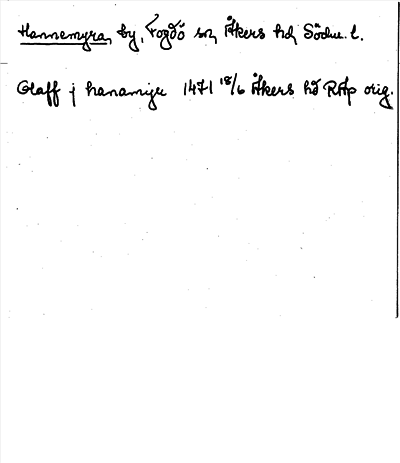 Hannemyra, by, Fogdö sn, Åkers hd, Södm. l.
Olaff j hanamyre 1471 18/6 Åkers hd RAp orig.